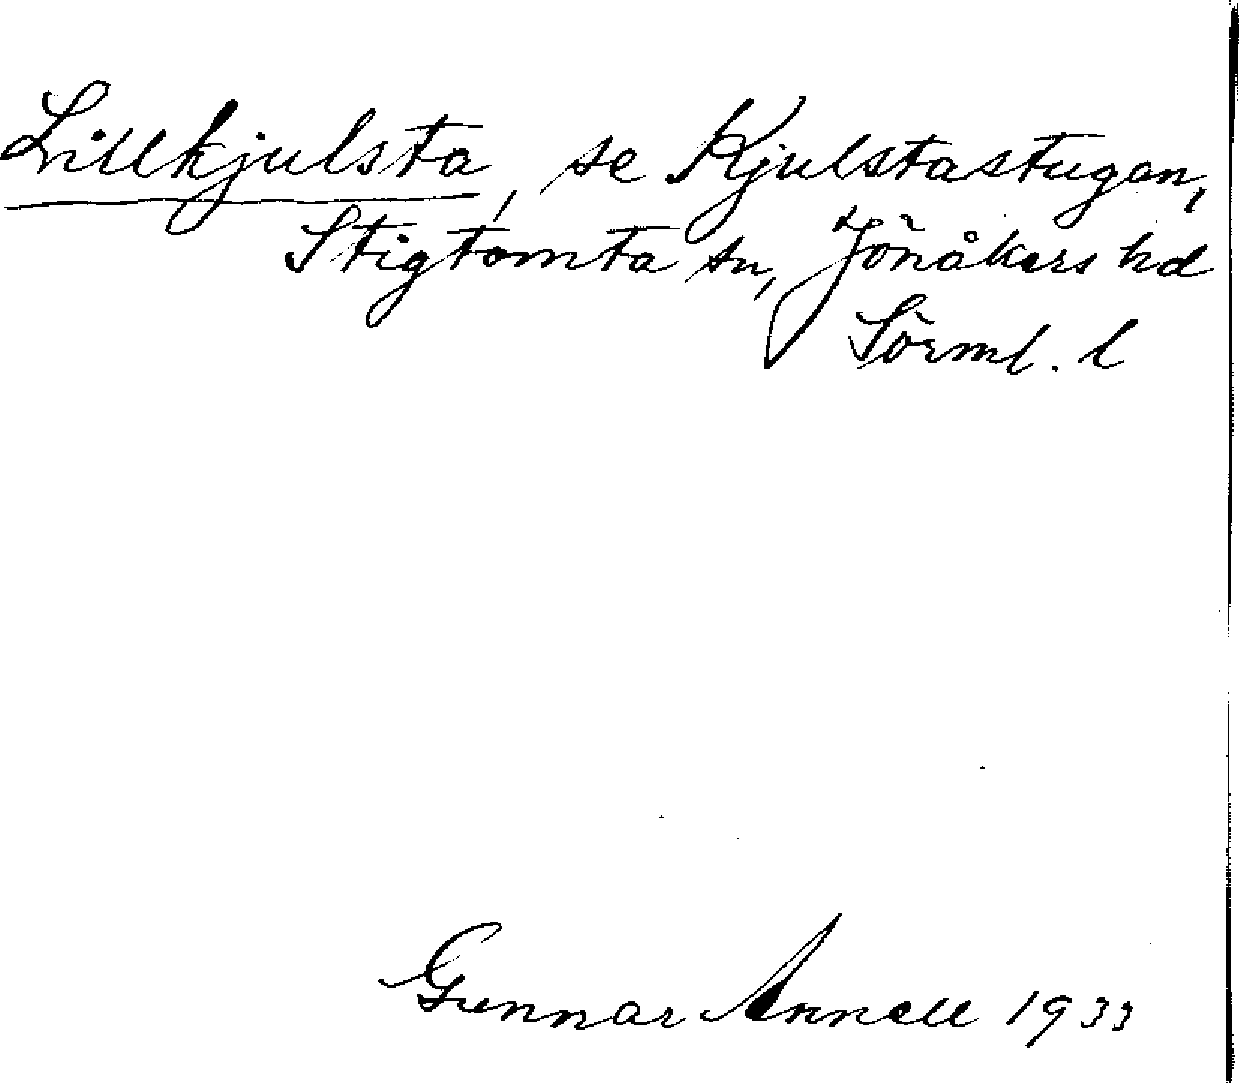 Lillkjulsta, se Kjulstastugan,
Stigtomta sn, Jönåkers hd
Sörml. l
Gunnar Annell 1933